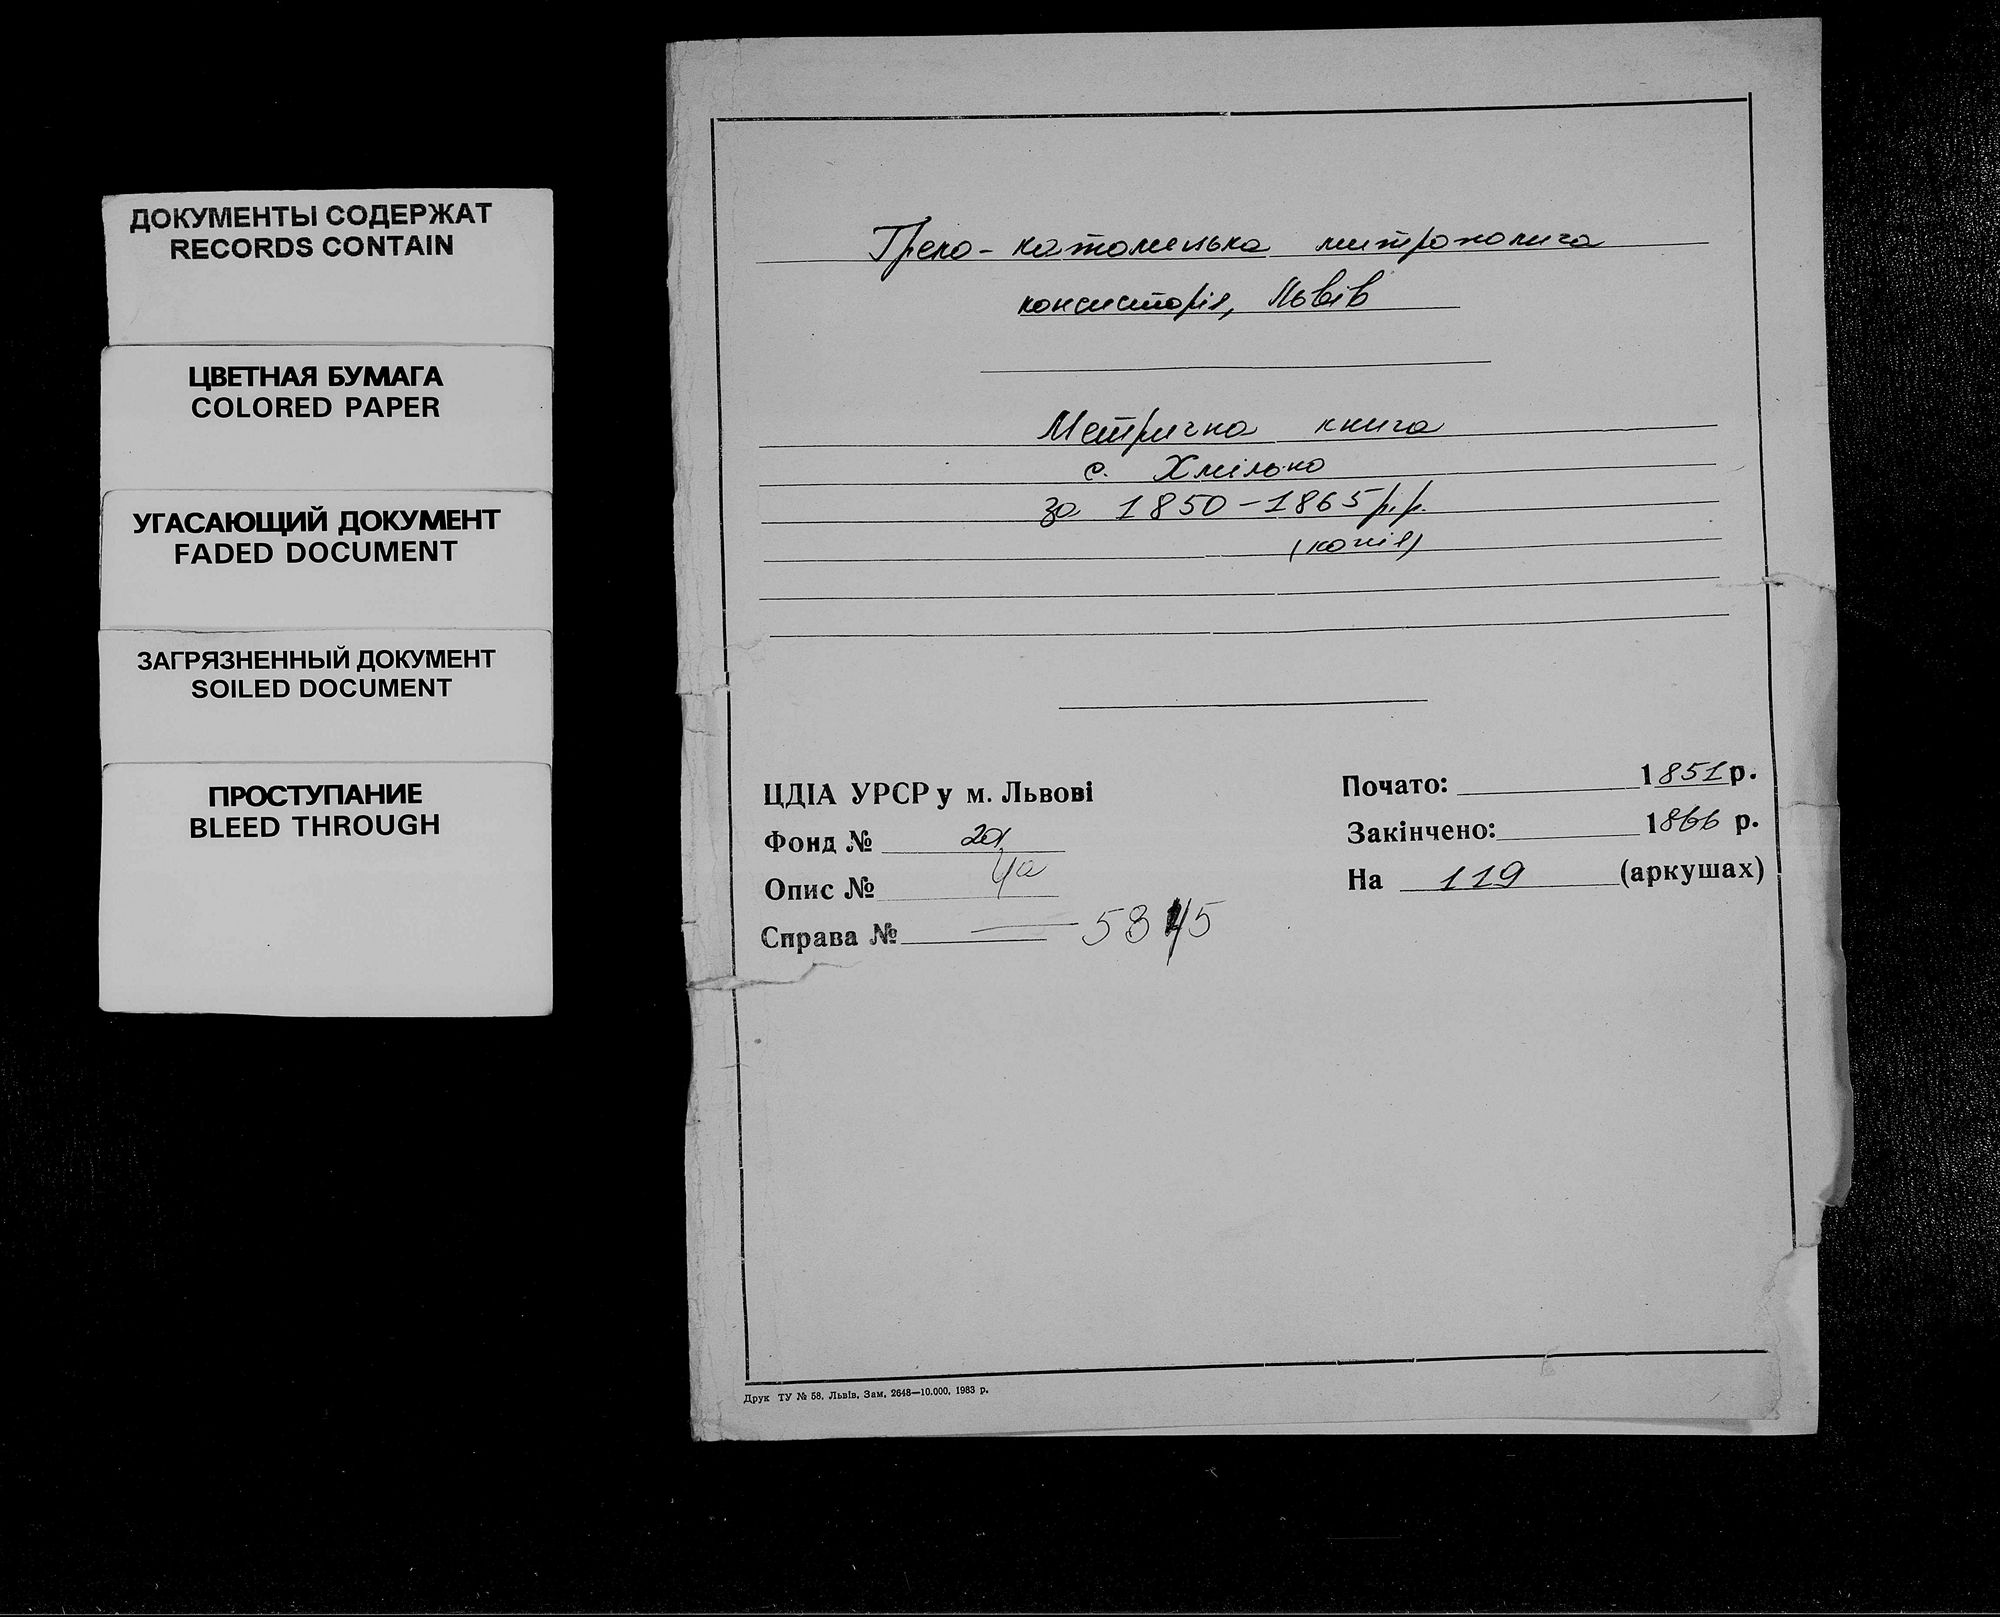 ДОКУМЕНТЫ СОДЕРЖАТ
RECORDS CONTAIN
ЦВЕТНАЯ БУМАГА
COLORED PAPER
УГАСАЮЩИЙ ДОКУМЕНТ
FADED DOCUMENT
ЗАГРЯЗНЕННЫЙ ДОКУМЕНТ
SOILED DOCUMENT
ПРОСТУПАНИЕ
BLEED THROUGH
Греко-католицька митрополича
консисторія, Львів
Метрична книга
с. Хмілько
за 1850-1865 р.р.
(копія)
ЦДІА УРСР у м. Львові
Фонд № 201
Опис № 4а
Справа №
Почато: 1851 р.
Закінчено: 1866 р.
На 119 (аркушах)
Друк ТУ № 58. Львів. Зам. 2648—10.000. 1983 р.